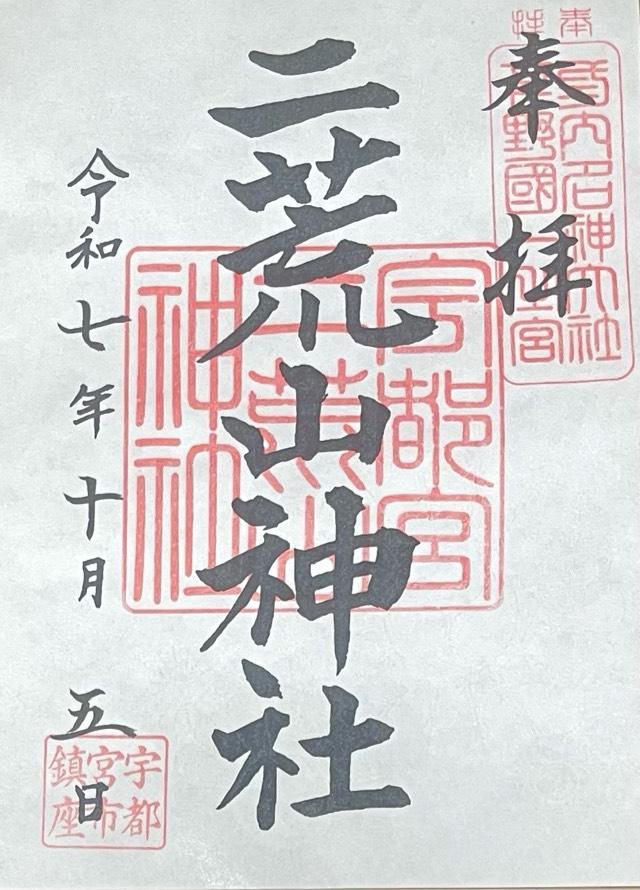 奉拝
奉拝
式内名神大社
下野國一之宮
二荒山神社
宇都宮
二荒山
神社
令和七年十月五日
宇都
宮市
鎮座